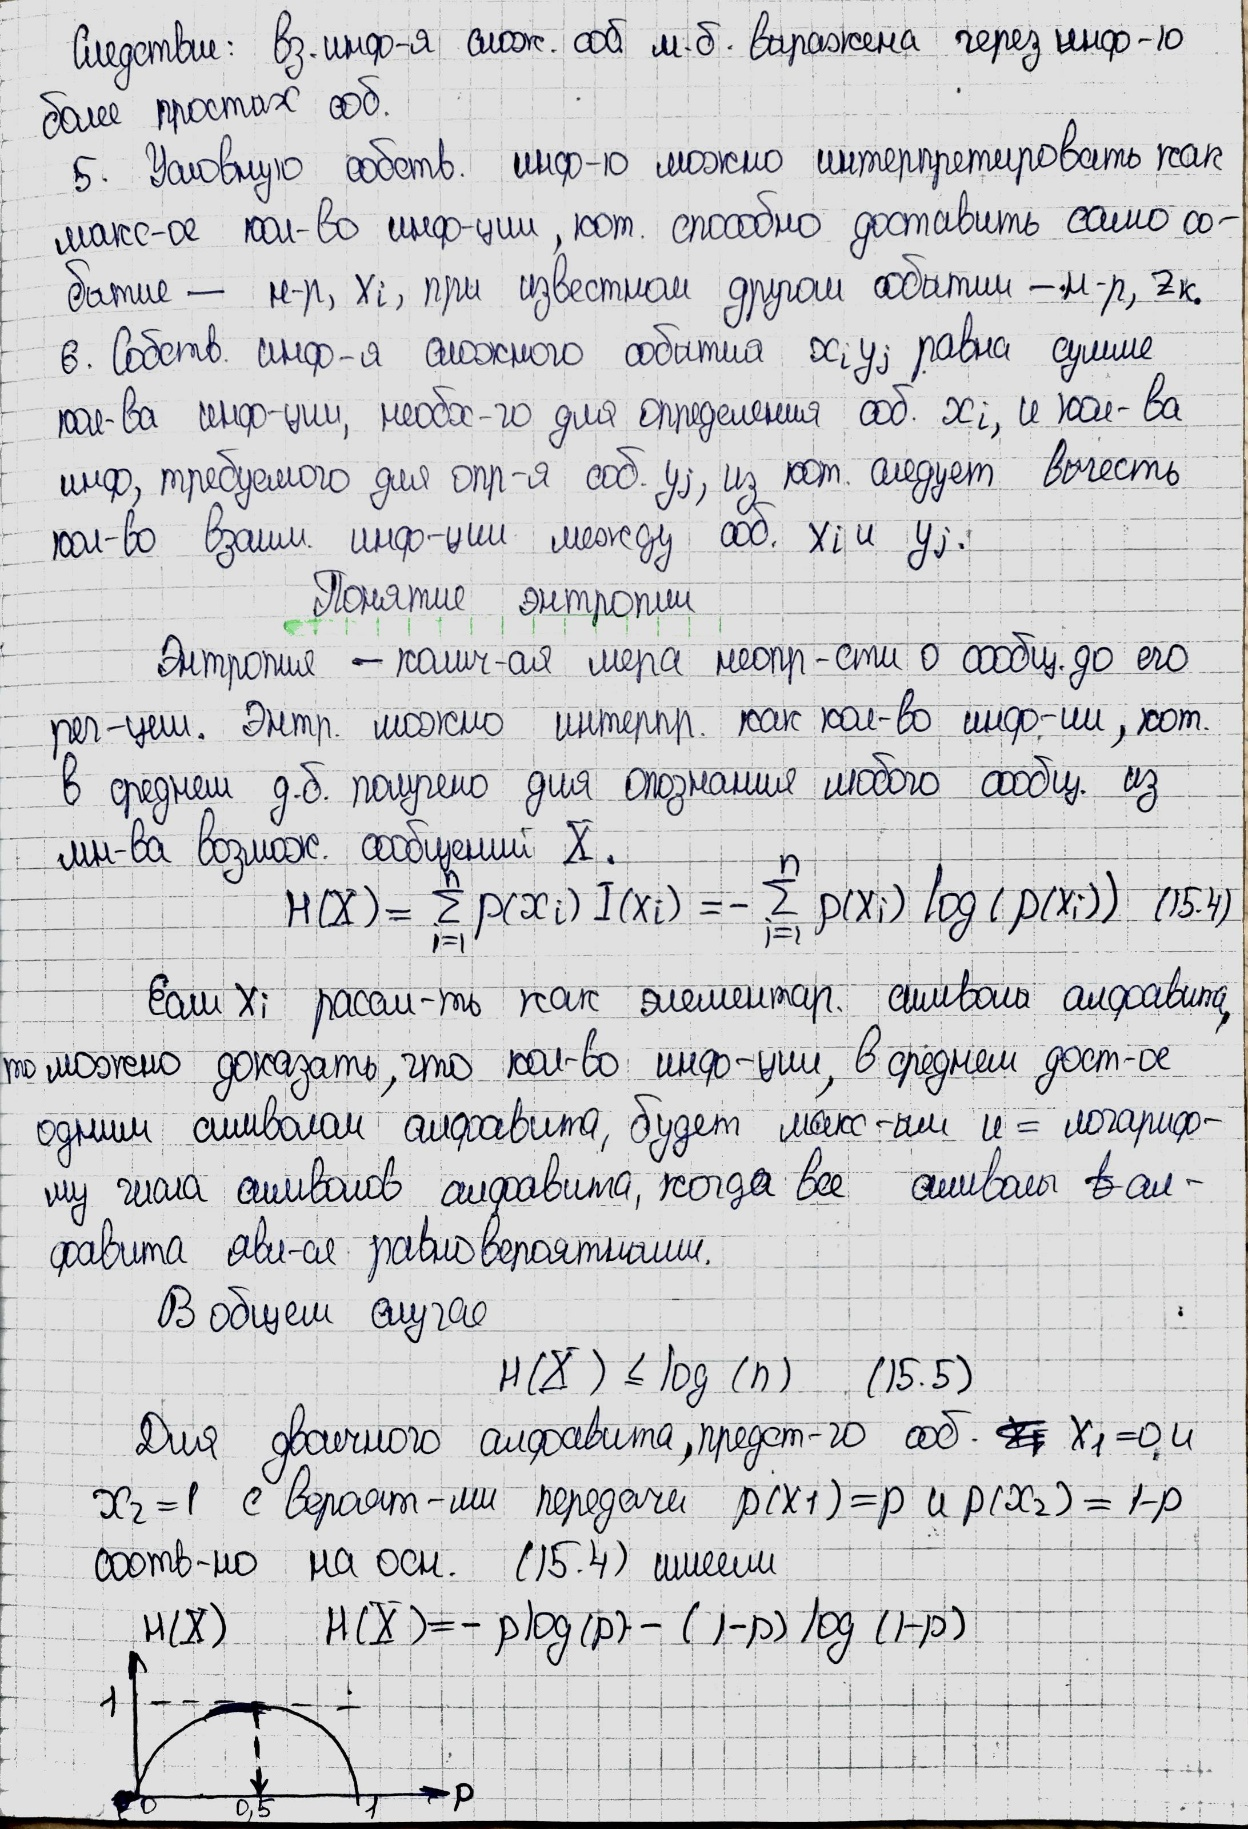 Следствие: вз. инф-я слож. соб м.б. выражена через инф-ю
более простых соб.
5. Условную собств. инф-ю можно интерпретировать как
макс-ое кол-во инф-ции, кот. способно доставить само со-
бытие — н-р, xi, при известном другом событии — н-р, zк.
6. Собств. инф-я сложного события xiyj равна сумме
кол-ва инф-ции, необх-го для определения соб. xi, и кол-ва
инф, требуемого для опр-я соб. yj, из кот. следует вычесть
кол-во взаим. инф-ции между соб. xi и yj.
Понятие энтропии
Энтропия — колич-ая мера неопр-сти о сообщ. до его
рег-ции. Энтр. можно интерпр. как кол-во инф-ии, кот.
в среднем д.б. получено для опознания любого сообщ. из
мн-ва возмож. сообщений X.
H(X) = n∑i=1 p(xi) I(xi) = - n∑i=1 p(xi) log(p(xi)) (15.4)
Если xi рассм-ть как элементар. символы алфавита,
то можно доказать, что кол-во инф-ции, в среднем дост-ое
одним символом алфавита, будет макс-ым и = логариф-
му числа символов алфавита, когда все символы ал-
фавита явл-ся равновероятными.
В общем случае
H(X) ≤ log (n) (15.5)
Для двоичного алфавита, предст-го соб. x1 = 0 и
x2 = 1 с вероят-ми передачи p(x1) = p и p(x2) = 1-p
соотв-но на осн. (15.4) имеем
H(X) H(X) = - p log(p) - (1-p) log (1-p)
1
0 0,5 1 p